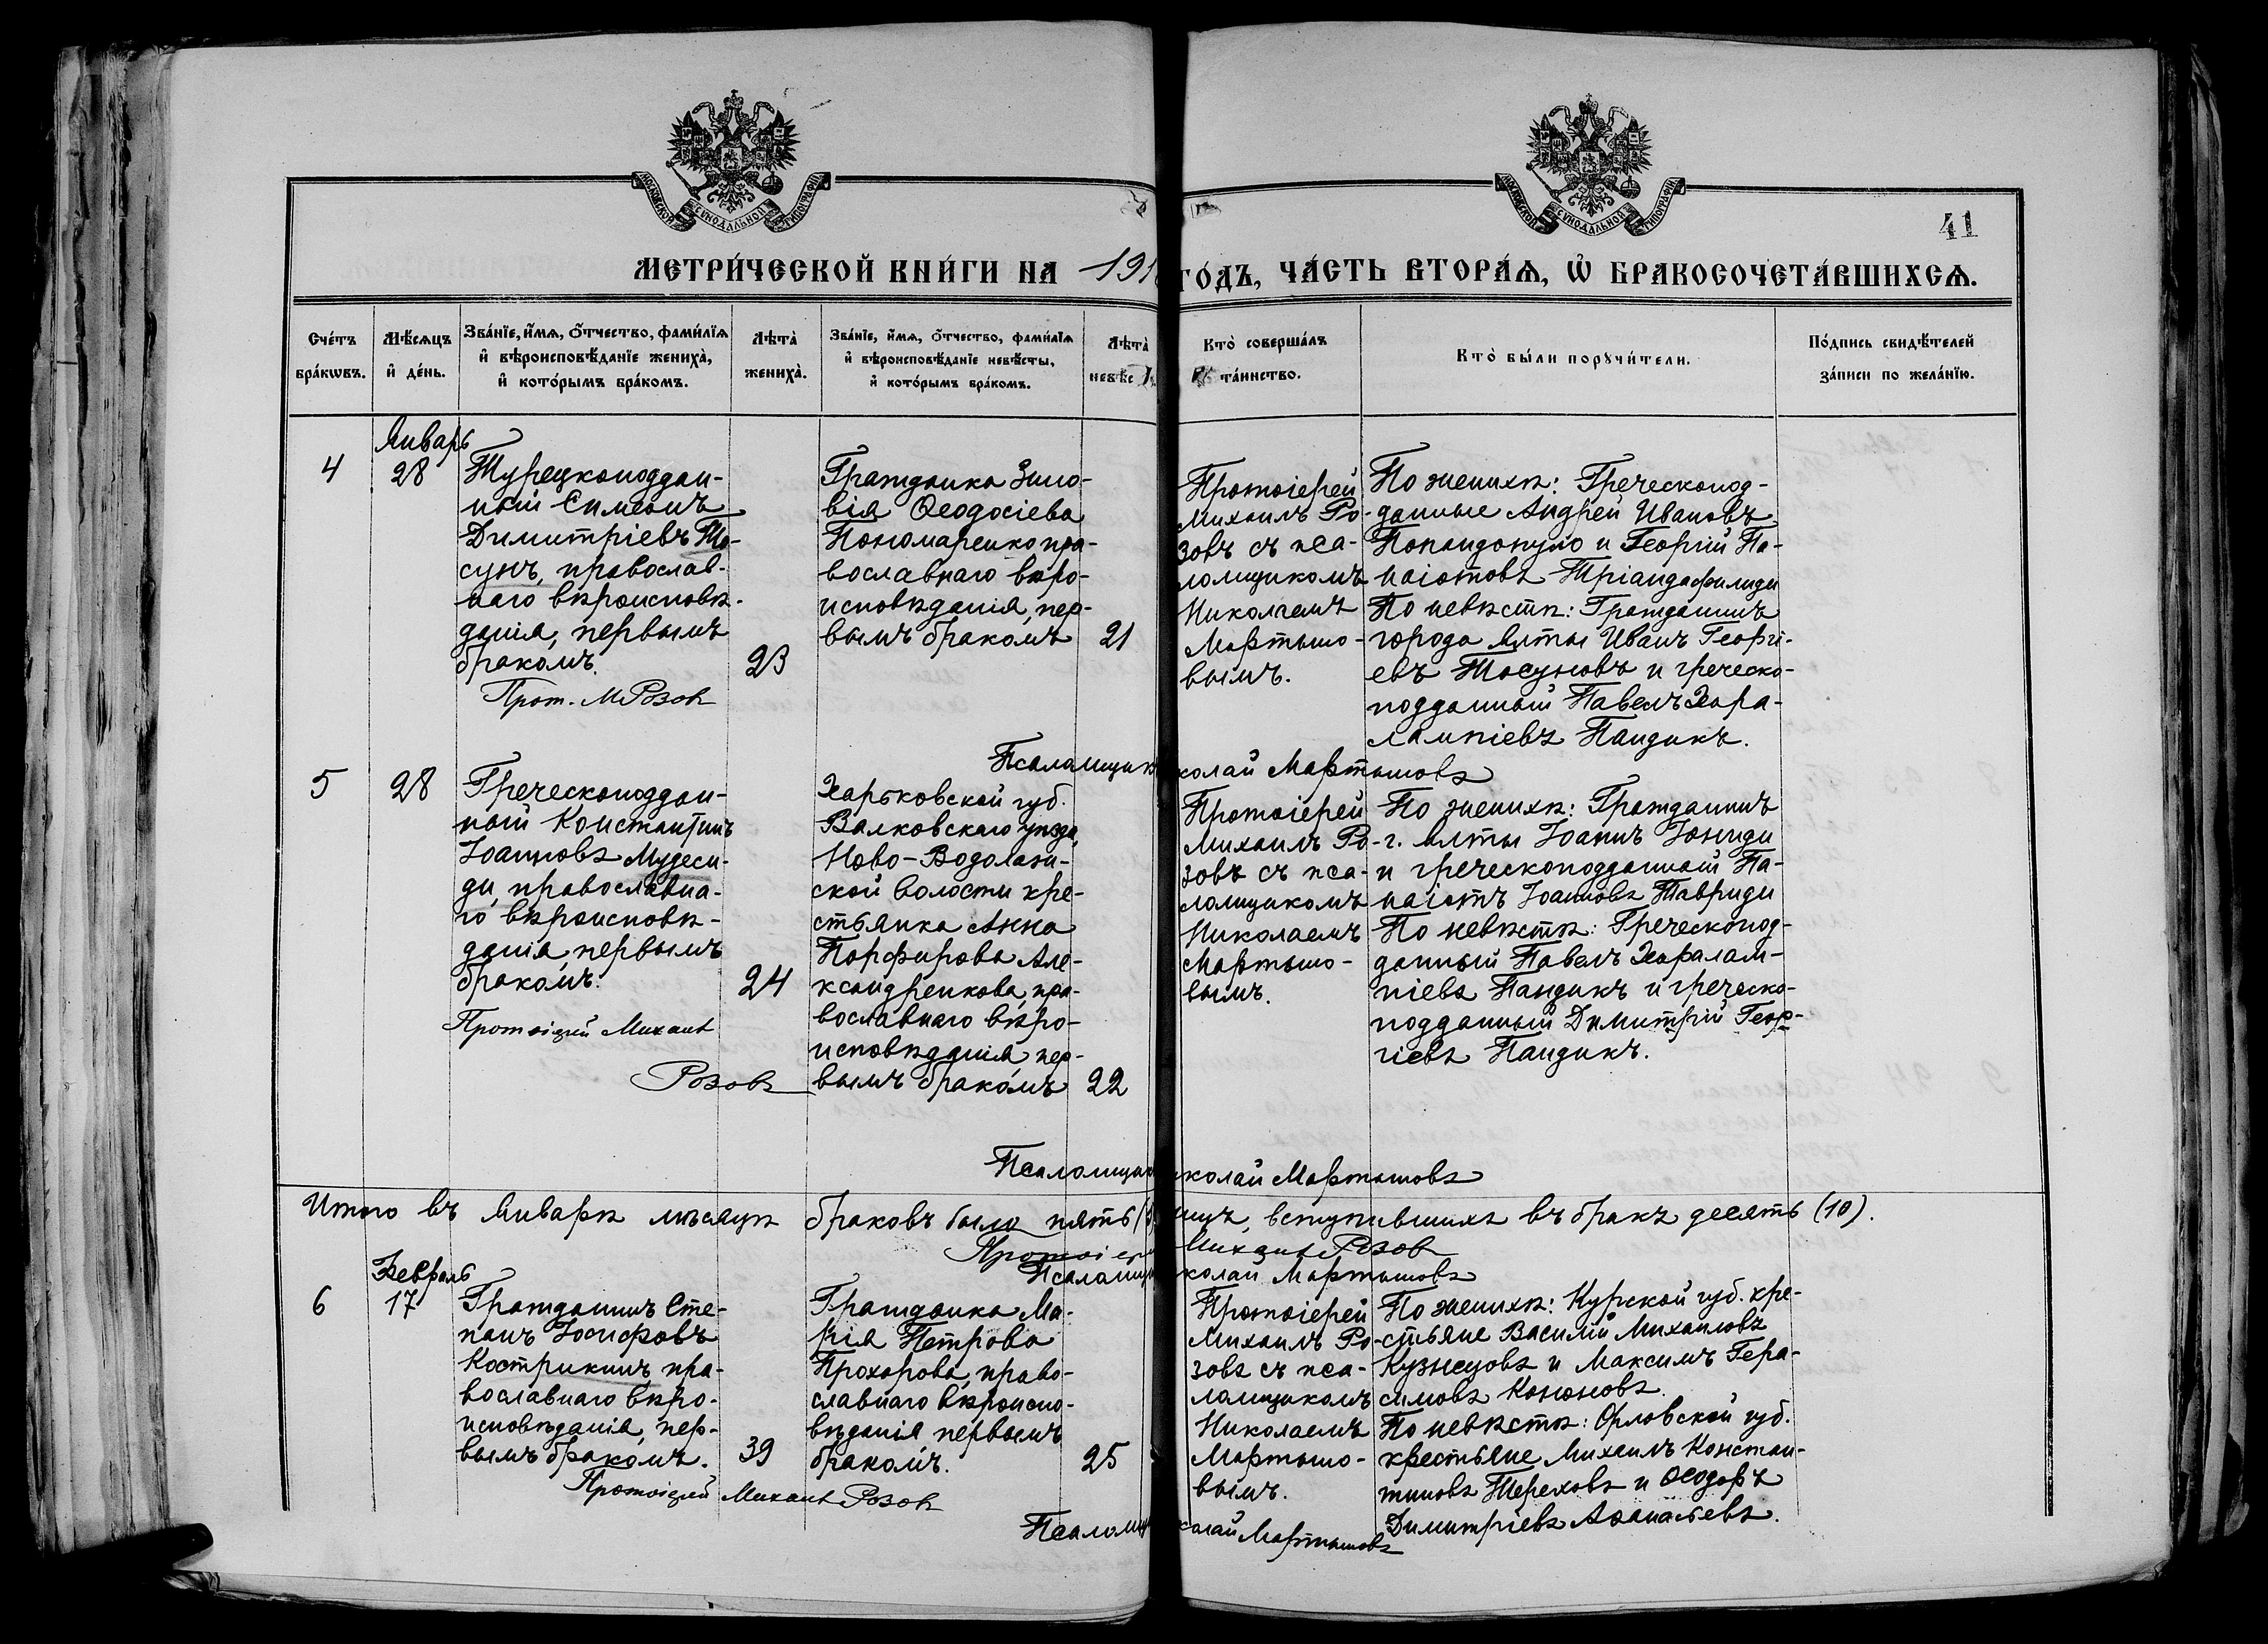 МОСКОВСКОЙ СѴНОДАЛЬНОЙ ТИПОГРАФІИ
МОСКОВСКОЙ СѴНОДАЛЬНОЙ ТИПОГРАФІИ
41
МЕТРИ́ЧЕСКОЙ КНИ́ГИ НА 191
ГО́ДЪ, ЧА́СТЬ ВТОРА́Ѧ, Ѿ БРАКОСОЧЕТА́ВШИХСѦ.
Сче́тъ бра́кѡвъ.
Мѣ́сѧцъ и҆ де́нь.
Зва́нїе, и҆́мѧ, ѻ҆́тчество, фами́лїѧ
и҆ вѣроисповѣ́данїе жениха̀,
и҆ кото́рымъ бра́комъ.
Лѣта̀ жениха̀.
Зва́нїе, и҆́мѧ, ѻ҆́тчество, фами́лїѧ
и҆ вѣроисповѣ́данїе невѣ́сты,
и҆ кото́рымъ бра́комъ.
Лѣта̀
невѣс
Кто̀ соверша́лъ
та́инство.
Кто̀ бы́ли порꙋчи́тели.
По́дпись свидѣ́телей
за́писи по жела́нїю.
Январь
4
28
Турецкоподдан-
ный Симеонъ
Димитріевъ То-
сунъ, православ-
наго вѣроисповѣ-
данія, первымъ
бракомъ.
23
Прот. М Розовъ
Гражданка Зино-
вія Ѳеодосіева
Пономаренко пра-
вославнаго вѣро-
исповѣданія, пер-
вымъ бракомъ
21
Протоіерей
Михаилъ Ро-
зовъ съ пса-
ломщикомъ
Николаемъ
Мартышо-
вымъ.
По женихѣ: Греческопод-
данные Андрей Ивановъ
Попандопуло и Георгій Па-
наіотовъ Тріандафилиди
По невѣстѣ: Гражданинъ
города Ялты Иванъ Георгі-
евъ Тосуновъ и греческо-
подданный Павелъ Хара-
лампіевъ Пандикъ.
Псаломщик
колай Мартышовъ
5
28
Греческоподдан-
ный Константинъ
Іоанновъ Мудеси-
ди, православна-
го вѣроисповѣ-
данія, первымъ
бракомъ.
24
Протоіерей Михаилъ
Розовъ
Харьковской губ.
Валковскаго уѣзда,
Ново-Водолаж-
ской волости кре-
стьянка Анна
Порфирова Але-
ксандренкова, пра-
вославнаго вѣро-
исповѣданія, пер-
вымъ бракомъ
22
Протоіерей
Михаилъ Ро-
зовъ съ пса-
ломщикомъ
Николаемъ
Мартышо-
вымъ.
По женихѣ: Гражданинъ
г. Ялты Іоаннъ Іониди
и греческоподданный Па-
наіотъ Іоанновъ Тавриди
По невѣстѣ: Греческопод-
данный Павелъ Харалам-
піевъ Пандикъ и греческо-
подданный Димитрій Геор-
гіевъ Пандикъ.
Псаломщик
колай Мартышовъ
Итого въ Январѣ мѣсяцѣ браковъ было пять
лицъ, вступившихъ въ бракъ десять (10).
Протоіере
Михаилъ Розовъ
Псаломщи
колай Мартышовъ
Февраль
6
17
Гражданинъ Сте-
панъ Іосифовъ
Кострикинъ, пра-
вославнаго вѣро-
исповѣданія, пер-
вымъ бракомъ.
39
Гражданка Ма-
рія Петрова
Прохорова, право-
славнаго вѣроиспо-
вѣданія первымъ
бракомъ.
25
Протоіерей Михаилъ Розовъ
Протоіерей
Михаилъ Ро-
зовъ съ пса-
ломщикомъ
Николаемъ
Мартышо-
вымъ.
По женихѣ: Курской губ. кре-
стьяне Василій Михаиловъ
Кузнецовъ и Максимъ Гера-
симовъ Конюновъ.
По невѣстѣ: Орловской губ.
крестьяне Михаилъ Констан-
тиновъ Тереховъ и Ѳеодоръ
Димитріевъ Аѳанасьевъ.
Псаломщ
колай Мартышовъ